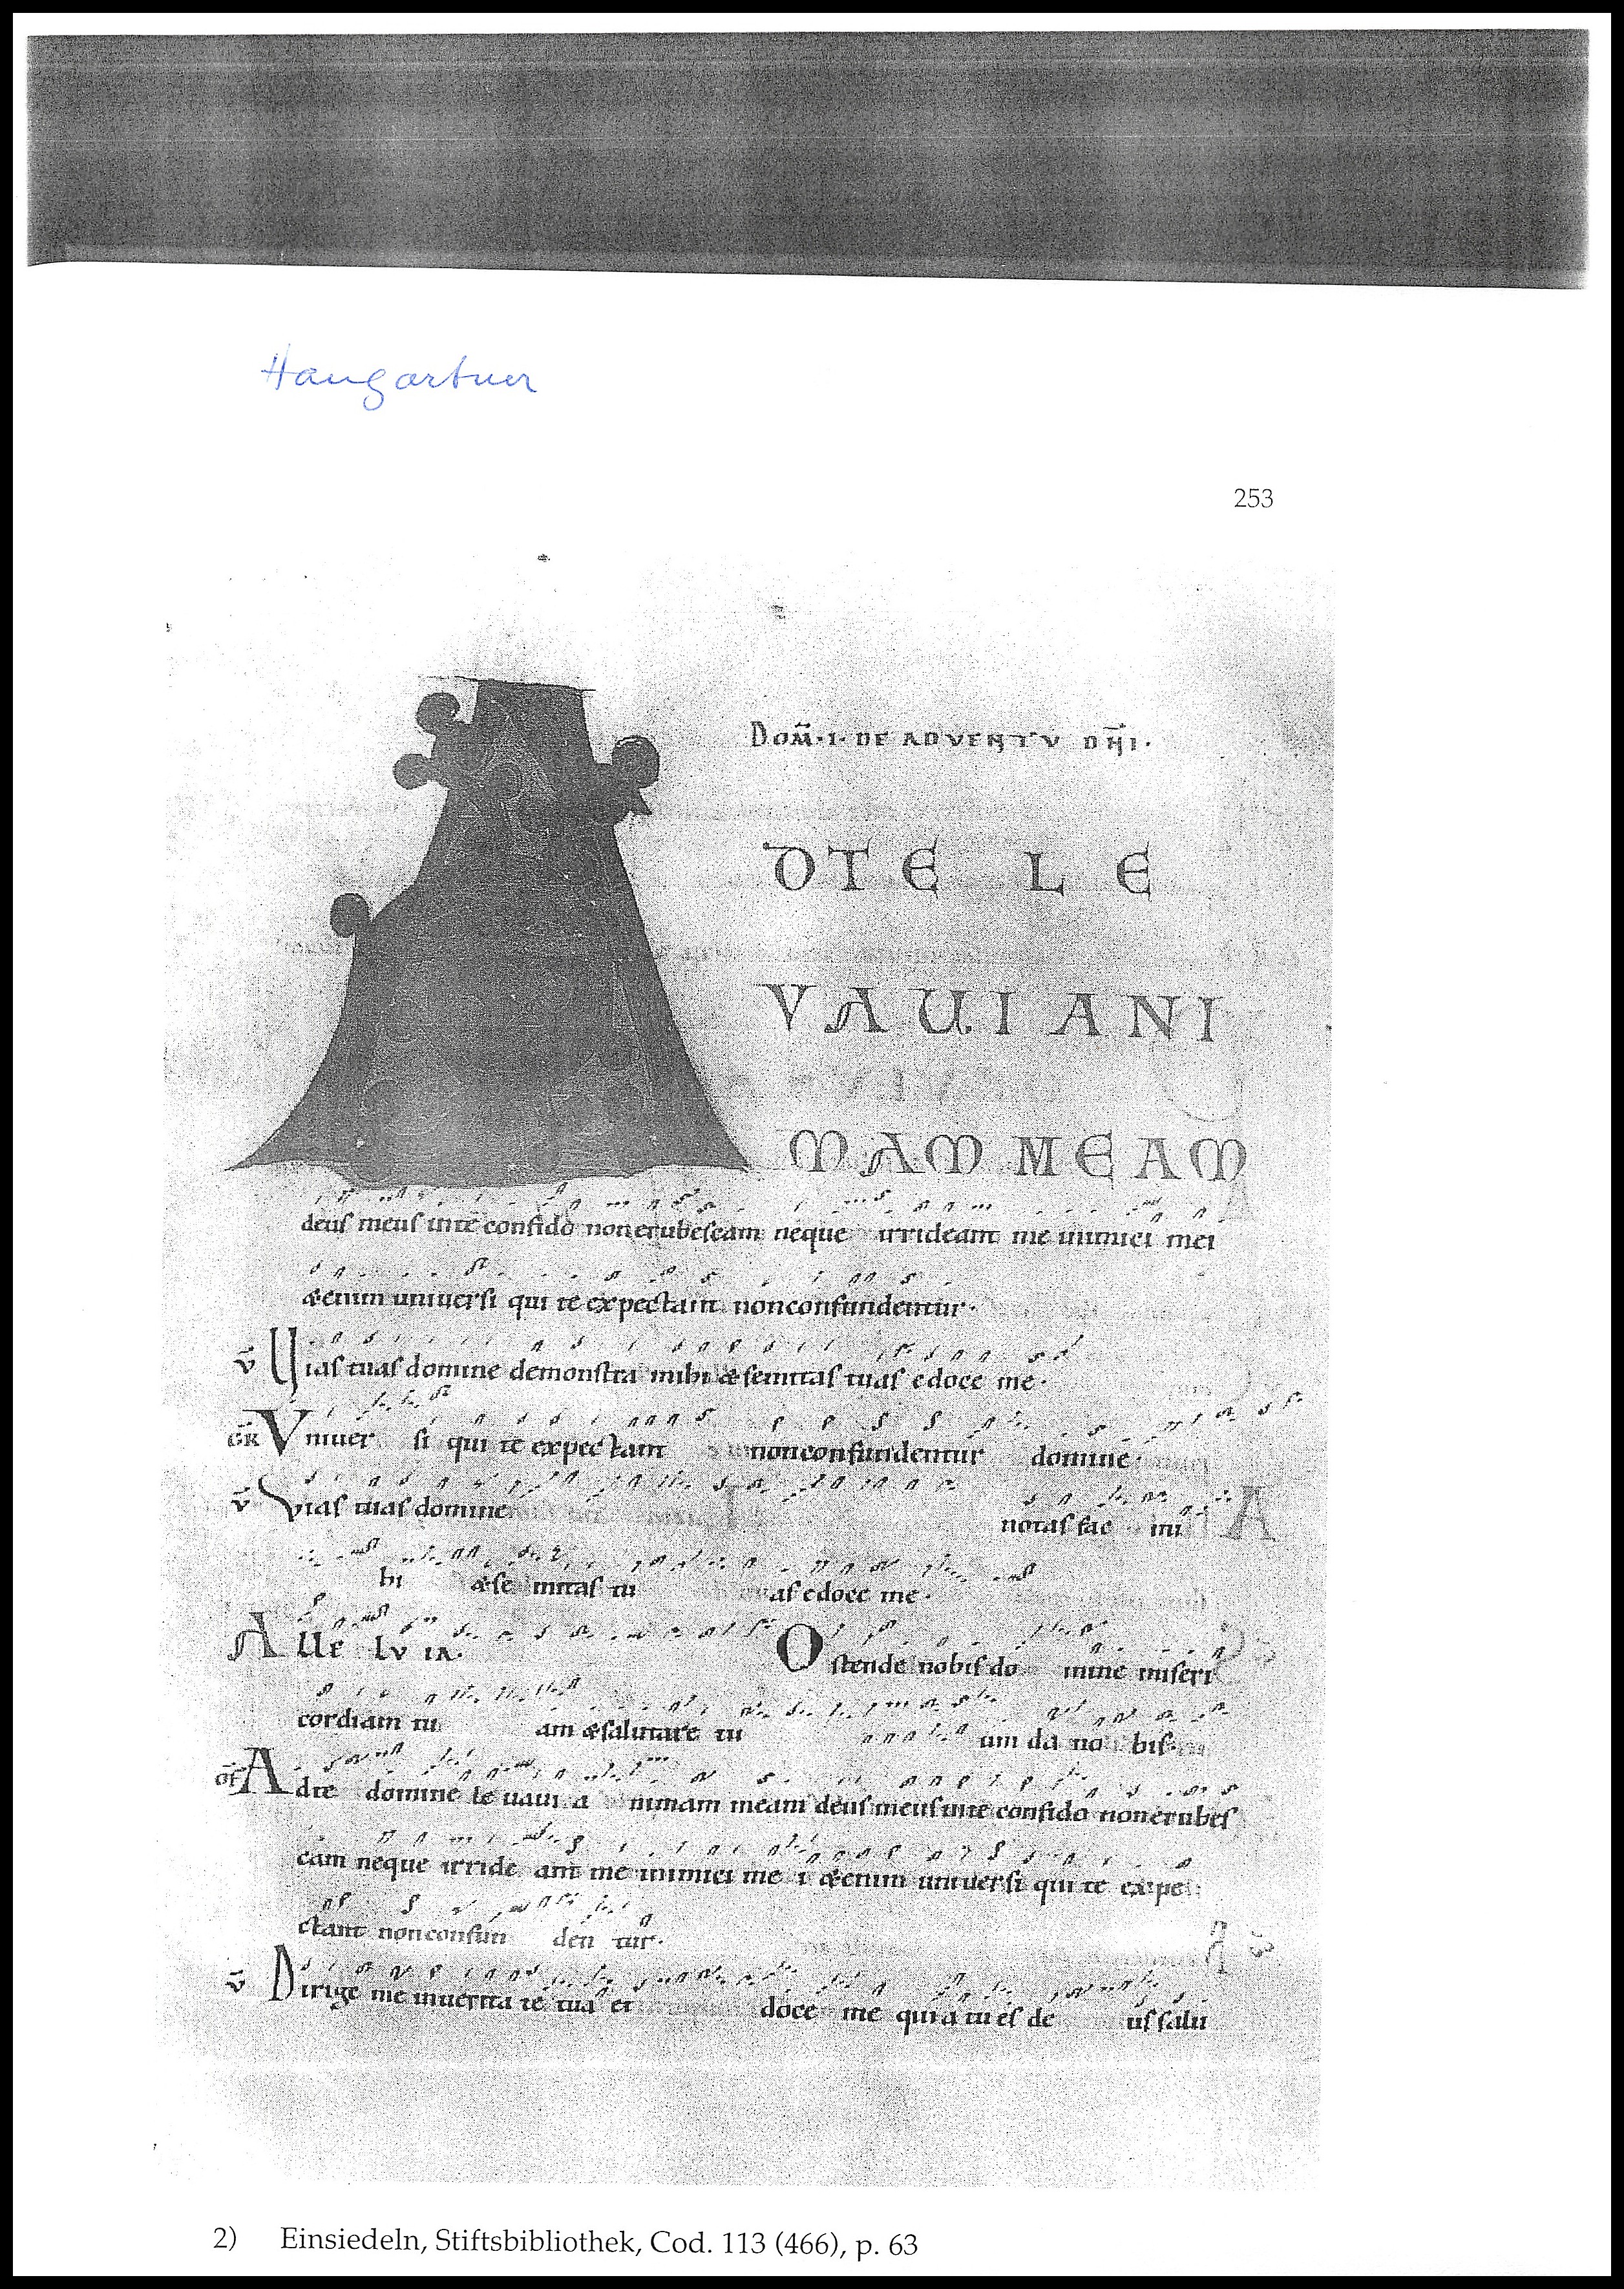 Haugartner
253
DOM̄·I·DE ADVENTV DN̄I·
DTE LE
VAUI ANI
MAM MEAM
deuſ meuſ inte confido nonerubeſcam neque irrideant me inimici mei
&enim uniuerſi qui te expectant nonconfundentur·
v̄ Uiaſ tuaſ domine demonſtra mihi &ſemitaſ tuaſ edoce me·
GR Vniuer ſi qui te expectant nonconfundentur domine·
v̄ Viaſ tuaſ domine notaſ fac mi
hi &ſe mitaſ tu aſ edoce me·
Alle lv ia· Oſtende nobiſ do mine miſeri
cordiam tu am &ſalutare tu um da no biſ·
of Adte domine le uaui a nimam meam deuſ meuſ inte confido nonerubeſ
cam neque irride ant me inimici me i &enim uniuerſi qui te expe
ctant nonconfun den tur·
v̄ Dirige me inuerita te tua et doce me quia tu eſ de uſ ſalu
2) Einsiedeln, Stiftsbibliothek, Cod. 113 (466), p. 63